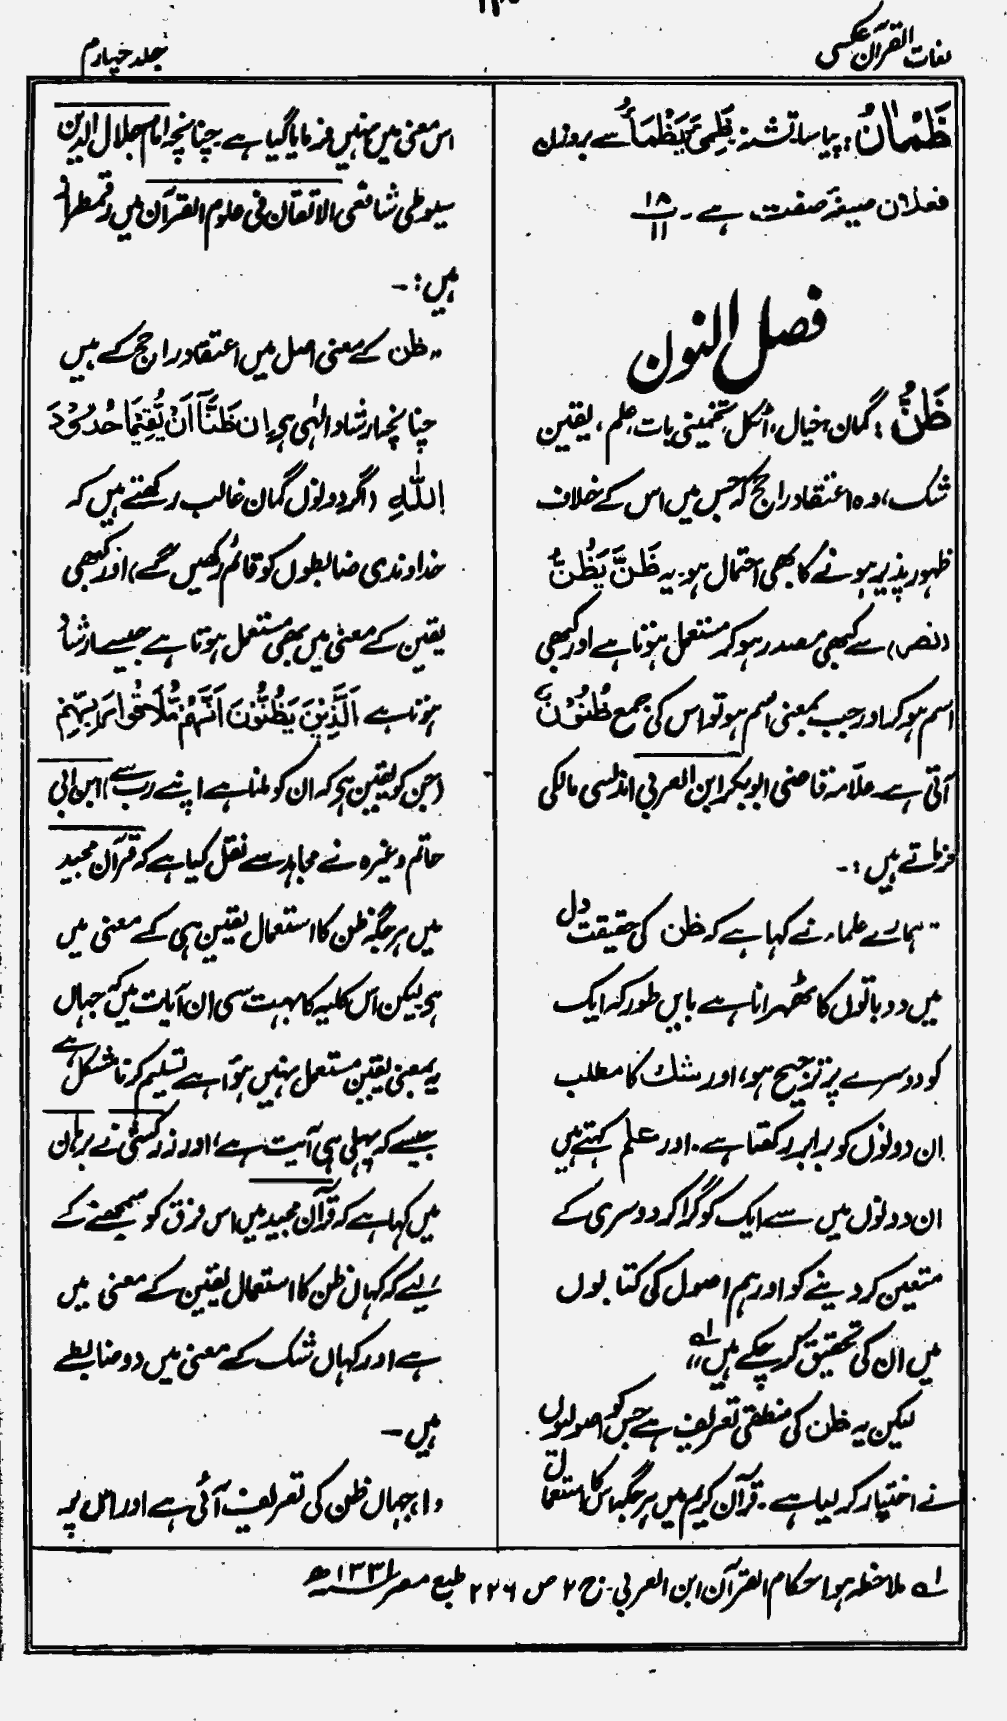 لغات القرآن عکسی
جلد چہارم
ظَمْاٰنُ: پیاسا، تشنہ، ظَمِیَٔ یَظْمَأُ سے بروزن
فعلان صیغۂ صفت ہے۔ ۱۸/۱۱
فصل النون
ظَنُّ: گمان، خیال، اٹکل، تخمینی بات، علم، یقین
شک، وہ اعتقاد راجح کہ جس میں اس کے خلاف
ظہور پذیر ہونے کا بھی احتمال ہو، یہ ظَنَّ یَظُنُّ
(نصر) سے کبھی مصدر ہو کر مستعمل ہوتا ہے اور کبھی
اسم ہو کر اور جب بمعنی اسم ہو تو اس کی جمع ظُنُوْنٌ
آتی ہے۔ علّامہ قاضی ابوبکر ابن العربی اندلسی مالکی
فرماتے ہیں:۔
"ہمارے علماء نے کہا ہے کہ ظن کی حقیقت دل
میں دو باتوں کا ٹھہرانا ہے بایں طور کہ ایک
کو دوسرے پر ترجیح ہو، اور شک کا مطلب
ان دونوں کو برابر رکھتا ہے۔ اور علم کہتے ہیں
ان دونوں میں سے ایک کو گرا کر دوسری کے
متعین کر دینے کو اور ہم اصول کی کتابوں
میں ان کی تحقیق کر چکے ہیں" لہ
لیکن یہ ظن کی منطقی تعریف ہے جس کو اصولیوں
نے اختیار کر لیا ہے۔ قرآن کریم میں ہر جگہ اس کا استعمال ان
اس معنی میں نہیں فرمایا گیا ہے۔ چنانچہ امام جلال الدین
سیوطی شافعی الاتقان فی علوم القرآن میں رقمطراز
ہیں:۔
"ظن کے معنی اصل میں اعتقاد راجح کے ہیں
چنانچہ ارشاد الٰہی ہے اِن ظَنَّآ اَنْ یُّقِیْمَا حُدُوْدَ
اللّٰہِ (اگر دونوں گمان غالب رکھتے ہیں کہ
خداوندی ضابطوں کو قائم رکھیں گے) اور کبھی
یقین کے معنی میں بھی مستعمل ہوتا ہے جیسے ارشاد
ہوتا ہے اَلَّذِیْنَ یَظُنُّوْنَ اَنَّھُمْ مُّلَاقُوْا رَبِّہِمْ
(جن کو یقین ہے کہ ان کو ملنا ہے اپنے رب سے) ابن ابی
حاتم وغیرہ نے مجاہد سے نقل کیا ہے کہ قرآن مجید
میں ہر جگہ ظن کا استعمال یقین ہی کے معنی میں
ہے لیکن اس کلیہ کا بہت سی ان آیات میں کہ جہاں
یہ بمعنی یقین مستعمل نہیں ہوا ہے تسلیم کرنا مشکل ہے
جیسے کہ پہلی ہی آیت ہے، اور زرکشی نے برہان
میں کہا ہے کہ قرآن مجید میں اس فرق کو سمجھنے کے
لیے کہ کہاں ظن کا استعمال یقین کے معنی میں
ہے اور کہاں شک کے معنی میں دو ضابطے
ہیں۔
(۱) جہاں ظن کی تعریف آئی ہے اور اس پر
لہ ملاحظہ ہو احکام القرآن ابن العربی۔ ج ۲ ص ۲۲۶ طبع مصر ۱۳۳۱ھ